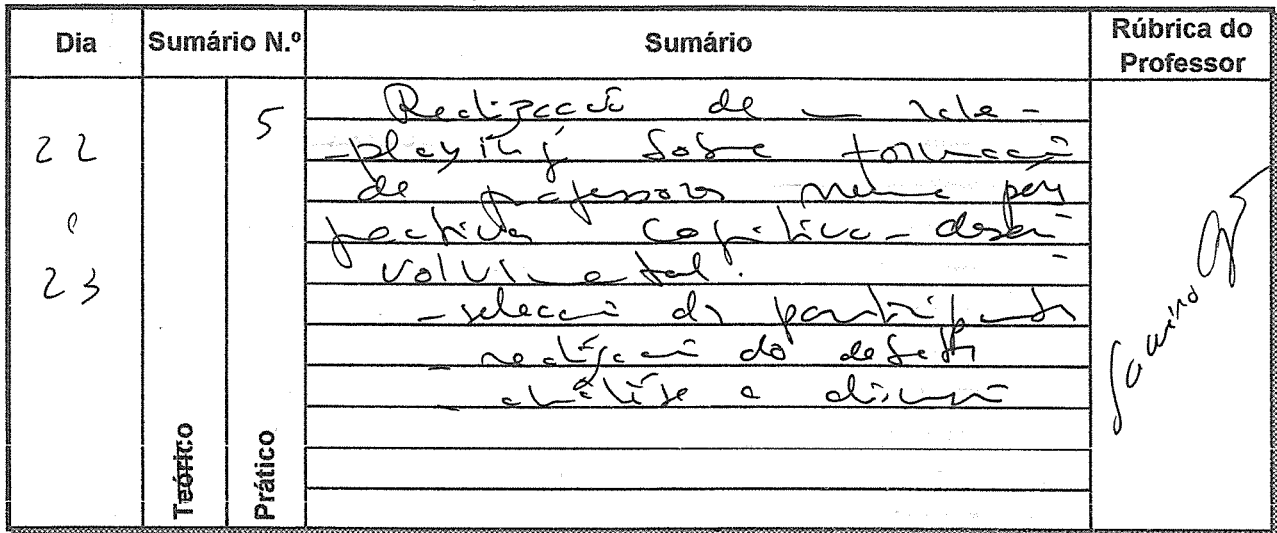 Dia
Sumário N.º
Sumário
Rúbrica do
Professor
22
e
23
5
Realização de um role-
-playing sobre formação
de professores numa pers
pectiva cognitivo-desen
volvimental.
- selecção dos participantes
- realização do debate
- análise e discussão
Teórico
Prático